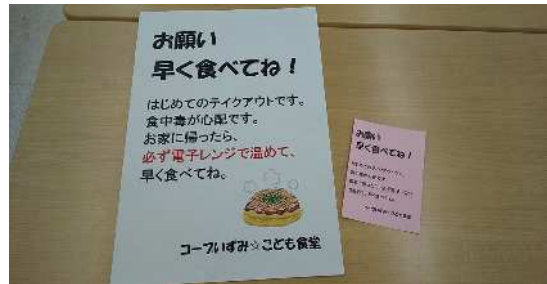 お願い
早く食べてね！
はじめてのテイクアウトです。
食中毒が心配です。
お家に帰ったら、
必ず電子レンジで温めて、
早く食べてね。
コープいずみ☆こども食堂
お願い
早く食べてね！